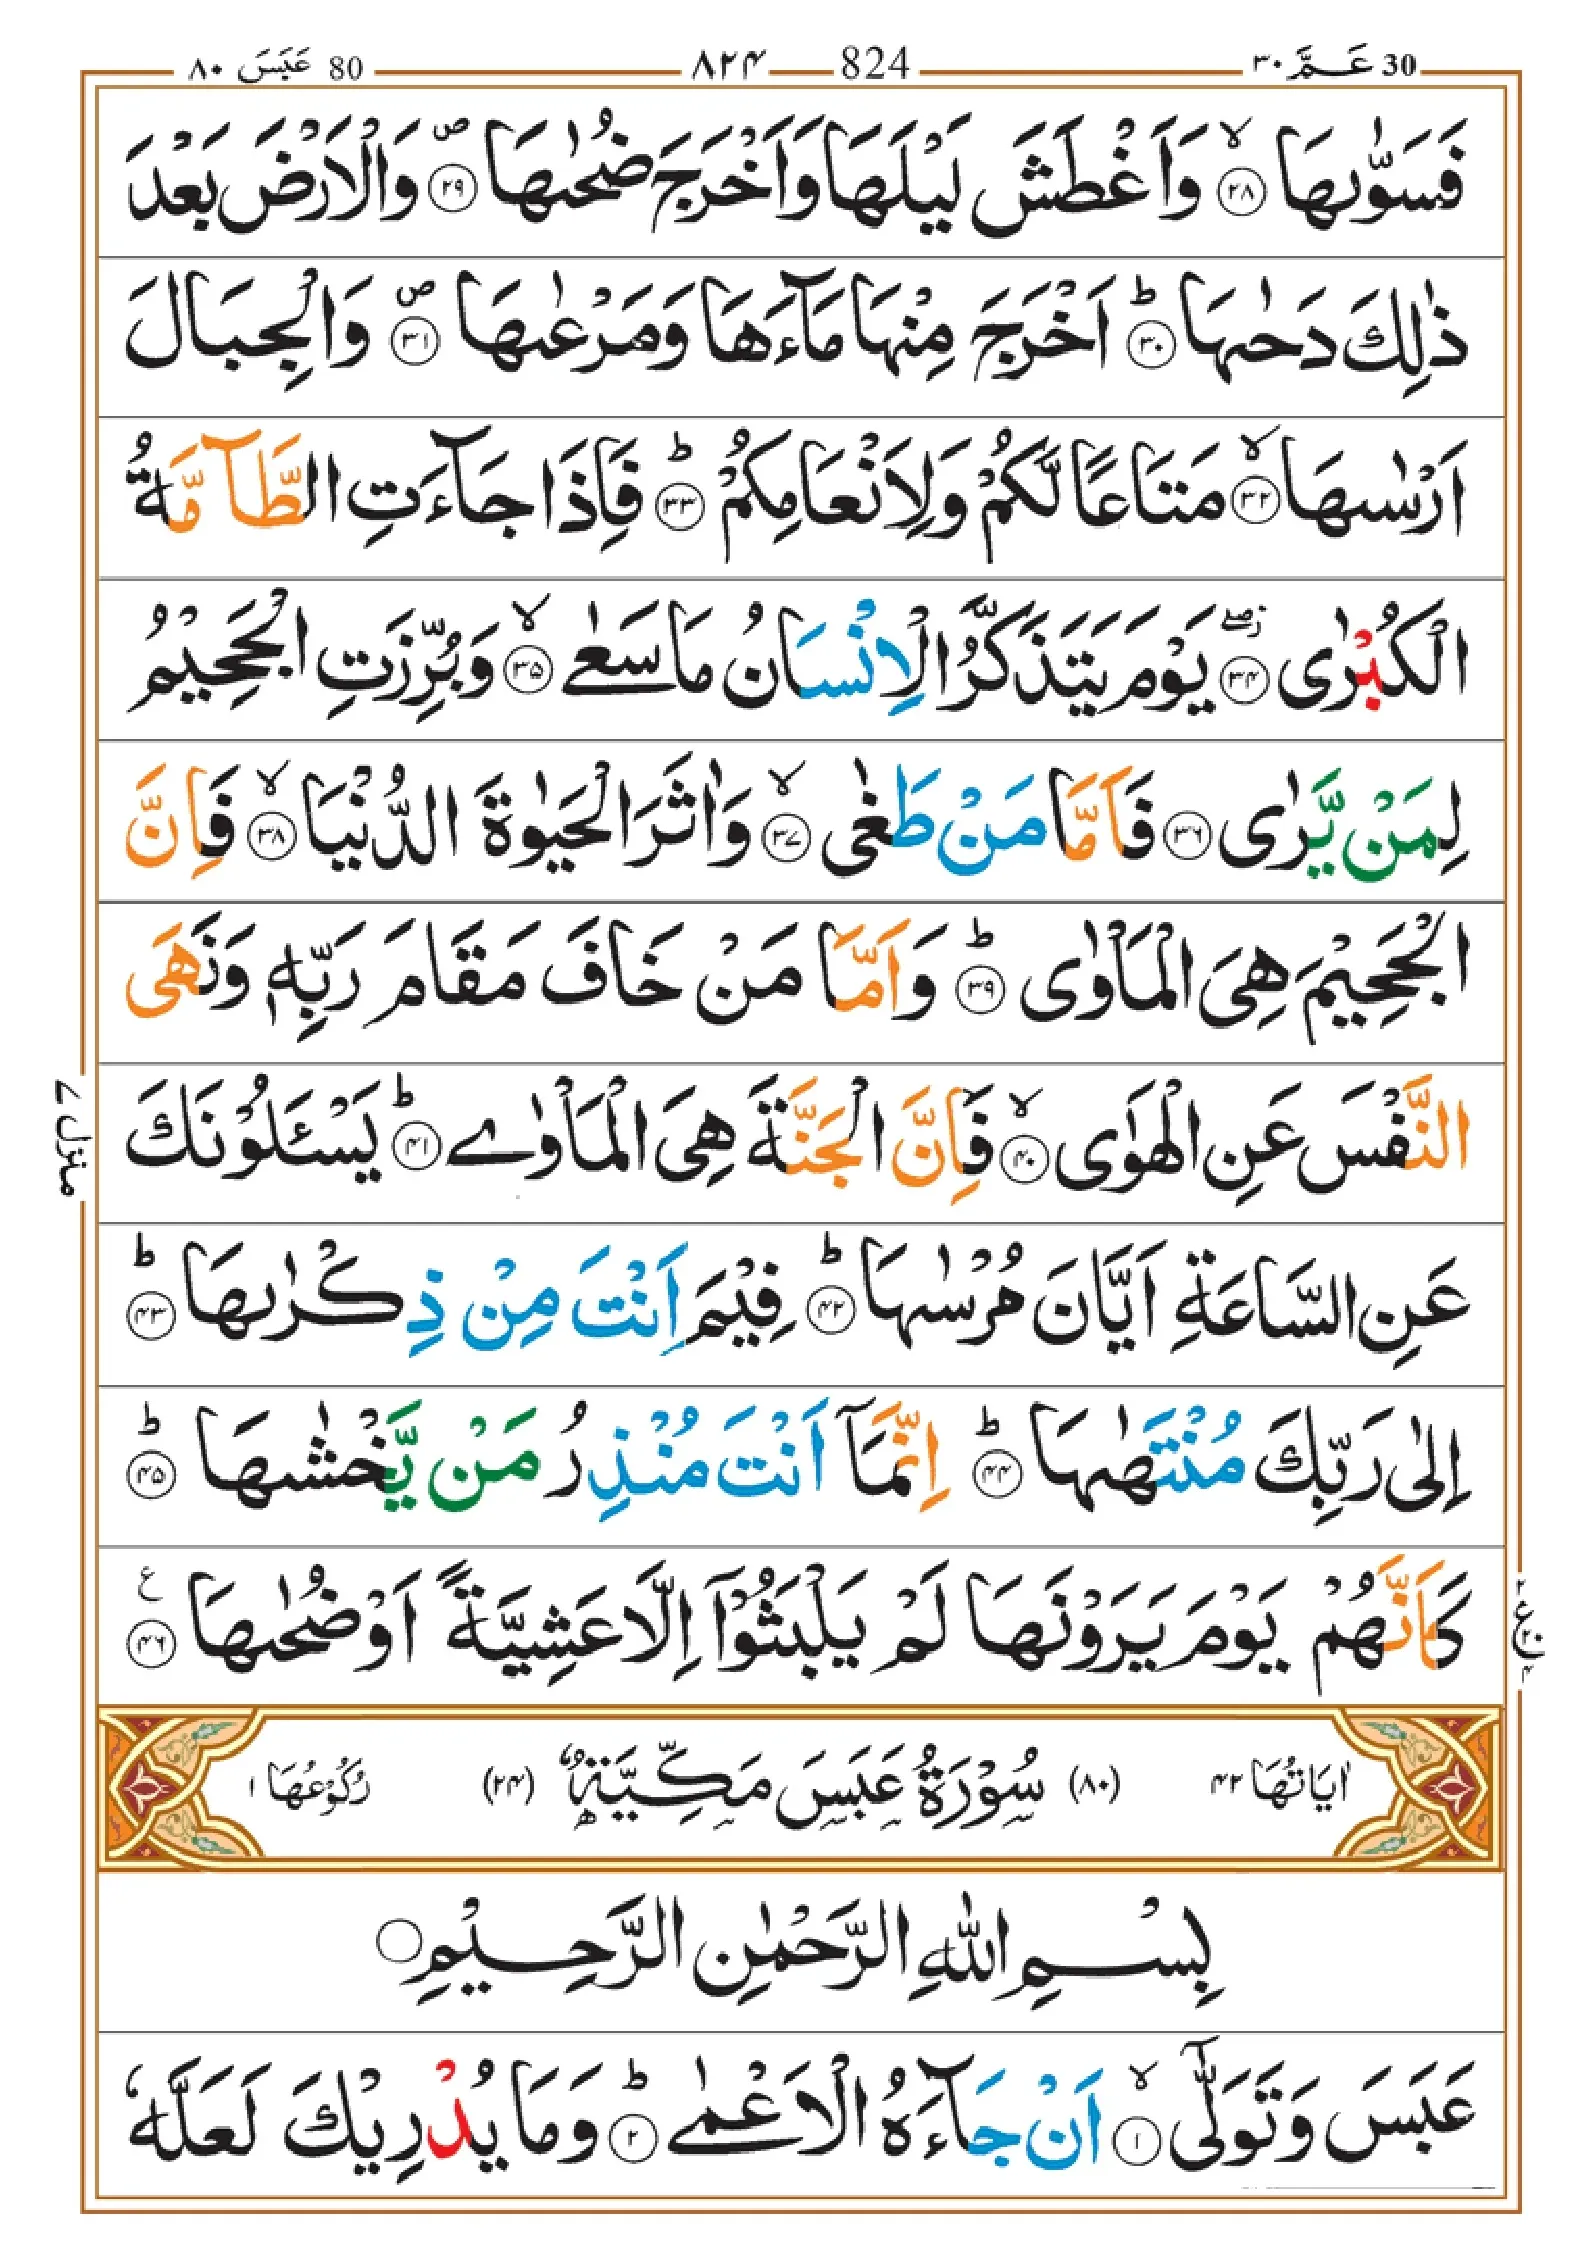 30 عَـمَّ ۳۰ 824 ۸۲۴ 80 عَبَسَ ۸۰
فَسَوّٰىهَا ۙ﴿۲۸﴾ وَاَغْطَشَ لَيْلَهَا وَاَخْرَجَ ضُحٰىهَا ۪﴿۲۹﴾ وَالْاَرْضَ بَعْدَ
ذٰلِكَ دَحٰىهَا ؕ﴿۳۰﴾ اَخْرَجَ مِنْهَا مَآءَهَا وَمَرْعٰىهَا ۪﴿۳۱﴾ وَالْجِبَالَ
اَرْسٰىهَا ۙ﴿۳۲﴾ مَتَاعًا لَّكُمْ وَلِاَنْعَامِكُمْ ؕ﴿۳۳﴾ فَاِذَا جَآءَتِ الطَّآمَّةُ
الْكُبْرٰى ۖ﴿۳۴﴾ يَوْمَ يَتَذَكَّرُ الْاِنْسَانُ مَا سَعٰى ۙ﴿۳۵﴾ وَبُرِّزَتِ الْجَحِيْمُ
لِمَنْ يَّرٰى ﴿۳۶﴾ فَاَمَّا مَنْ طَغٰى ۙ﴿۳۷﴾ وَاٰثَرَ الْحَيٰوةَ الدُّنْيَا ۙ﴿۳۸﴾ فَاِنَّ
الْجَحِيْمَ هِىَ الْمَاْوٰى ؕ﴿۳۹﴾ وَاَمَّا مَنْ خَافَ مَقَامَ رَبِّهٖ وَنَهَى
النَّفْسَ عَنِ الْهَوٰى ۙ﴿۴۰﴾ فَاِنَّ الْجَنَّةَ هِىَ الْمَاْوٰے ؕ﴿۴۱﴾ يَسْـَٔلُوْنَكَ
عَنِ السَّاعَةِ اَيَّانَ مُرْسٰىهَا ؕ﴿۴۲﴾ فِيْمَ اَنْتَ مِنْ ذِكْرٰىهَا ؕ﴿۴۳﴾
اِلٰى رَبِّكَ مُنْتَهٰىهَا ؕ﴿۴۴﴾ اِنَّمَآ اَنْتَ مُنْذِرُ مَنْ يَّخْشٰىهَا ؕ﴿۴۵﴾
كَاَنَّهُمْ يَوْمَ يَرَوْنَهَا لَمْ يَلْبَثُوْٓا اِلَّا عَشِيَّةً اَوْ ضُحٰىهَا ﴿۴۶﴾ ع
منزل ۷
اٰيَاتُهَا ۴۲ (۸۰) سُوْرَةُ عَبَسَ مَكِّيَّةٌ (۲۴) رُكُوْعُهَا ۱
بِسْمِ اللّٰهِ الرَّحْمٰنِ الرَّحِيْمِ
عَبَسَ وَتَوَلّٰٓى ۙ﴿۱﴾ اَنْ جَآءَهُ الْاَعْمٰى ؕ﴿۲﴾ وَمَا يُدْرِيْكَ لَعَلَّهٗ